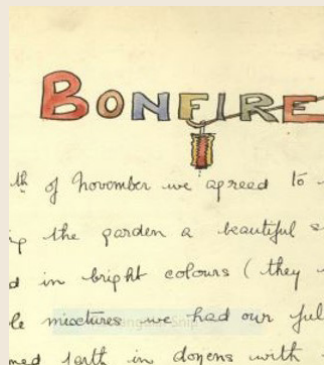 BONFIRE
th of November we agreed to
the garden a beautiful
d in bright colours (they
le mixtures we had our ful
ned forth in dozens with